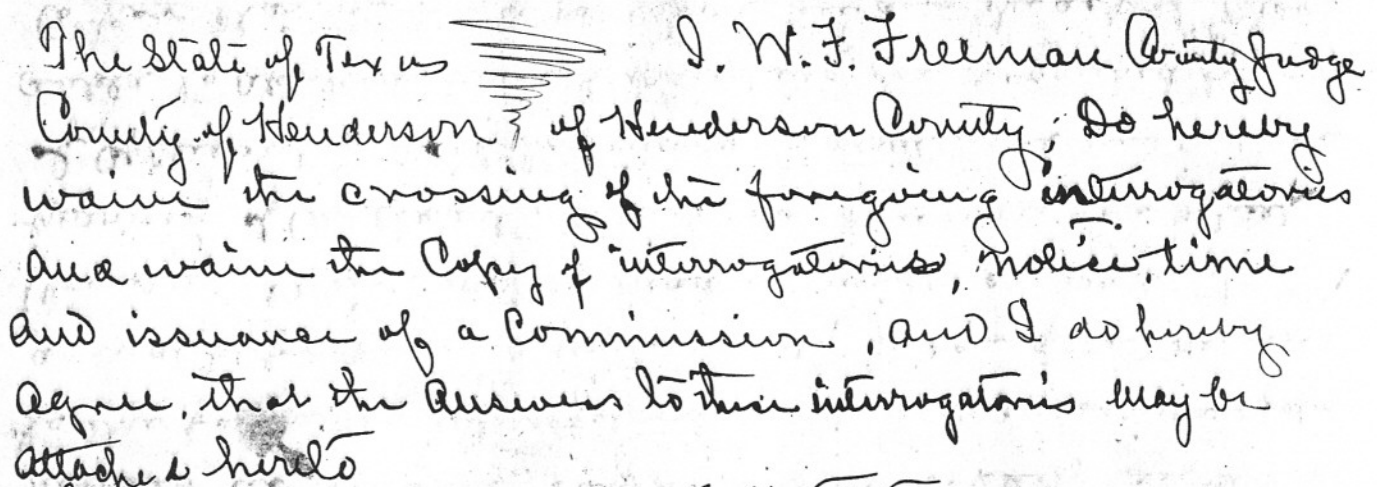 The State of Texas I. W. F. Freeman County Judge
County of Henderson of Henderson County, Do hereby
waive the crossing of the foregoing interrogatories
and waive the Copy of interrogatories, notice, time
and issuance of a Commission, and I do hereby
agree, that the answers to these interrogatories may be
attached hereto